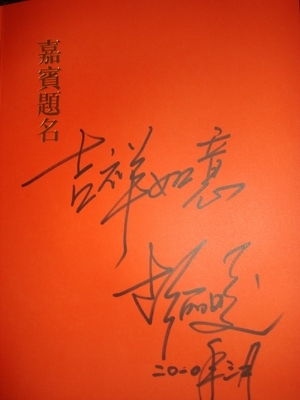 嘉賓題名
吉祥如意
二〇一〇年三月